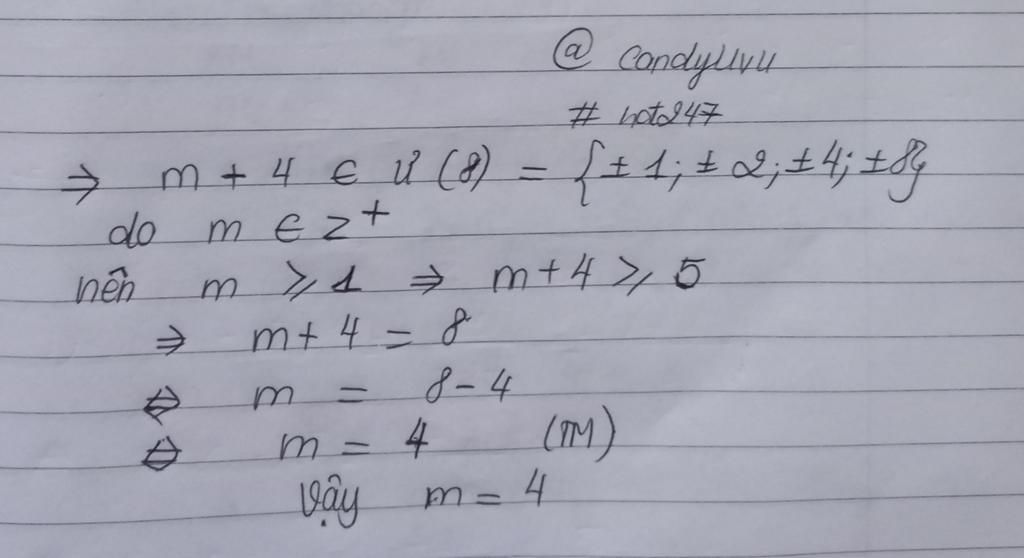 @ candyuvu
# hot247
⇒ m + 4 ∈ Ư (8) = {±1; ±2; ±4; ±8}
do m ∈ Z⁺
nên m ⩾ 1 ⇒ m + 4 ⩾ 5
⇒ m + 4 = 8
⇔ m = 8 - 4
⇔ m = 4 (TM)
Vậy m = 4